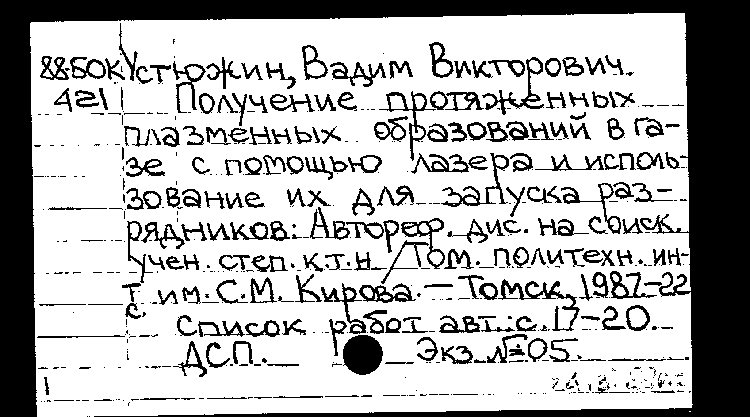 88-БОК Устюжин, Вадим Викторович.
421 Получение протяженных
плазменных образований в га-
зе с помощью лазера и исполь-
зование их для запуска раз-
рядников: Автореф. дис. на соиск.
учен. степ. к.т.н. / Том. политехн. ин-
т им. С.М. Кирова. — Томск, 1987. – 22
с.
Список работ авт.: с. 17–20.
ДСП. Экз. №05.
1